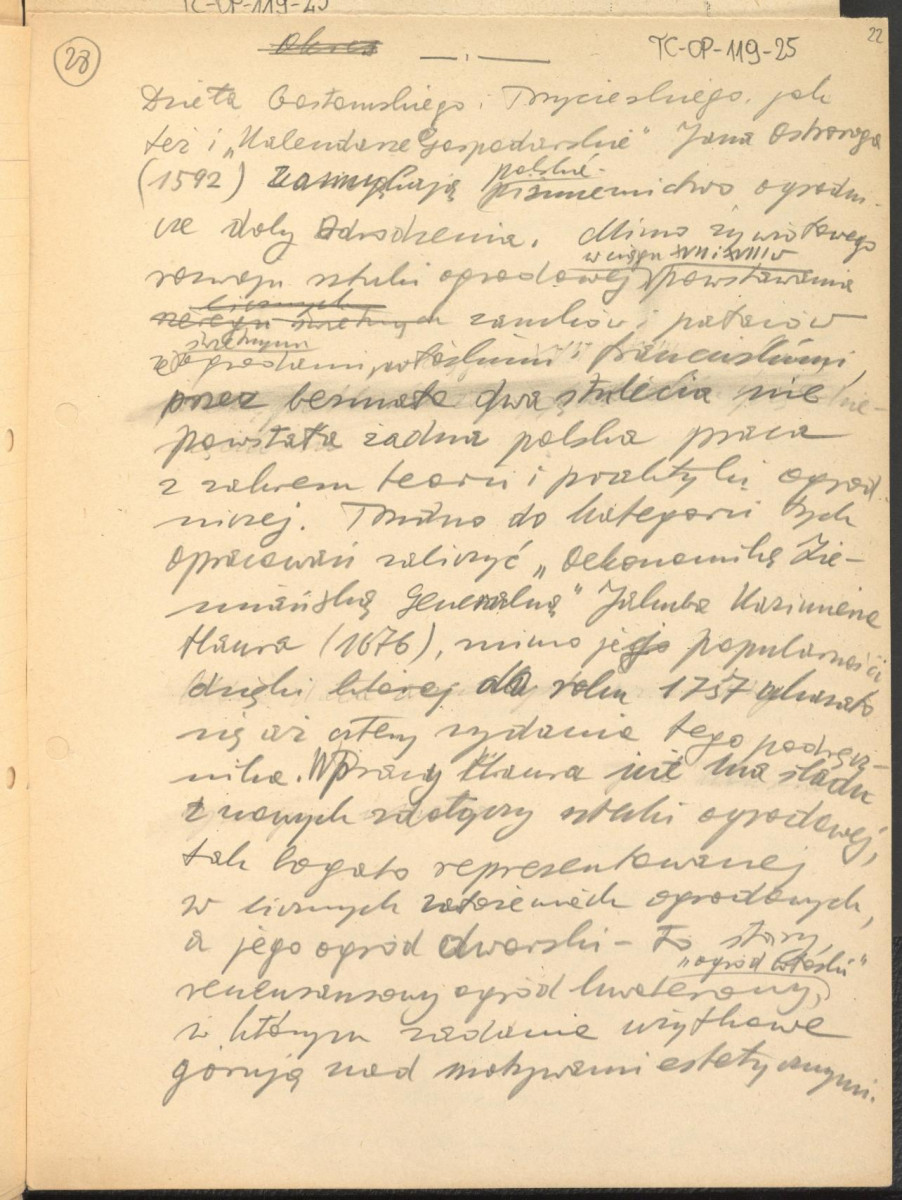 TC-OP-119-25
28
Okres
TC-OP-119-25
22
Dzieła Gostomskiego i Trzycieskiego, jak
też i „Kalendarze Gospodarskie" Jana Ostroroga
(1592) zamykają polskie piśmiennictwo ogrodni-
cze doby Odrodzenia. Mimo żywiołowego
w ciągu XVII i XVIII w
rozwoju sztuki ogrodowej powstawania
licznych
szeregu świetnych zamków i pałaców
świetnymi
z ogrodami włoskimi i francuskimi,
przez bezmała dwa stulecia nie
powstała żadna polska praca
z zakresu teorii i praktyki ogrod-
niczej. Trudno do kategorii tych
opracowań zaliczyć „Oekonomikę Zie-
miańską Generalną" Jakuba Kazimierza
Haura (1676), mimo jego popularności
dzięki której do roku 1757 ukazało
się aż cztery wydania tego podręcz-
nika. W pracy Haura nie ma śladu
z nowych zdobyczy sztuki ogrodowej,
tak bogato reprezentowanej
w licznych założeniach ogrodowych,
a jego ogród dworski – to stary,
„ogród włoski"
renesansowy ogród kwaterowy,
w którym zadania użytkowe
górują nad motywami estetycznymi.